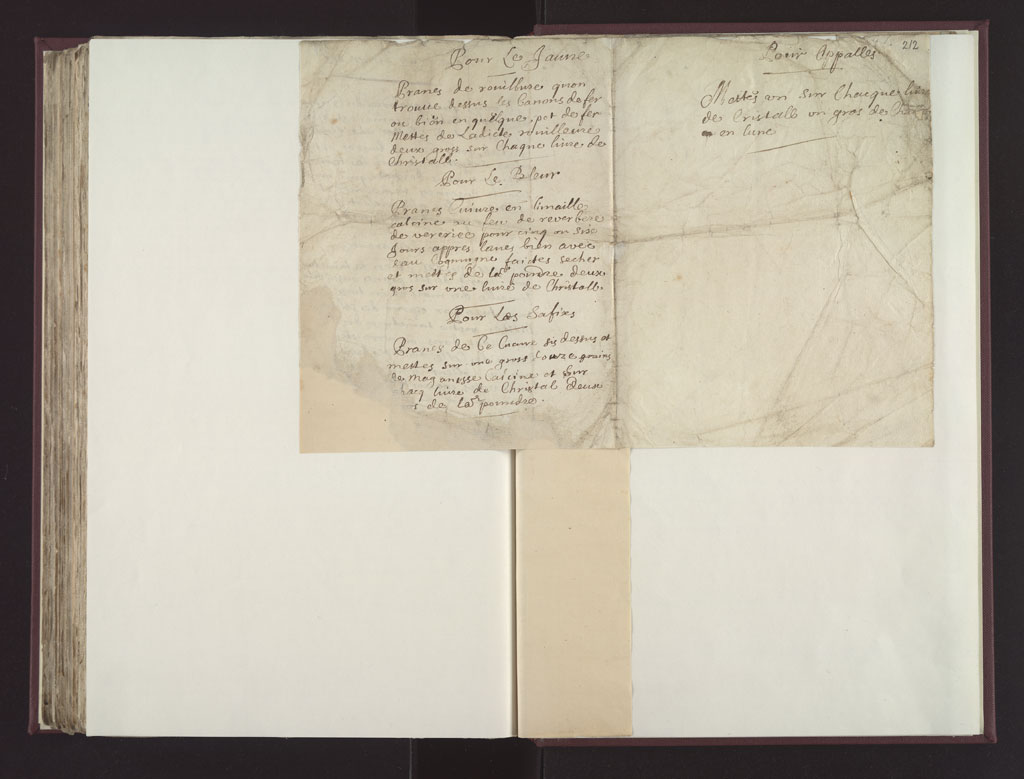 Pour Le Jaune
Pranes de rouilleure quon
trouue dessus les Canons de fer
ou bien en quelque pot de fer
Mettes de Ladicte rouilleure
deux gross sur Chaque livre de
Christall.
Pour Le Bleur
Pranes Cuiure en limaille
calcine au feu de reverbere
de vererie pour cinq ou six
Jours appres laues bien avec
eau faictes secher
et mettes de lad. pouudre deux
gros sur une livre de Christall.
Pour Les Safirs
Pranes de Ce Cuiure sis dessus et
mettes sur une gross douze grains
de Maganesse Calcine et Sur
chacq livre de Christal deux
de lad. pouudre.
212
Pour Appalles
Mettes un sur Chacque livre
de Cristall un gros de
en lune